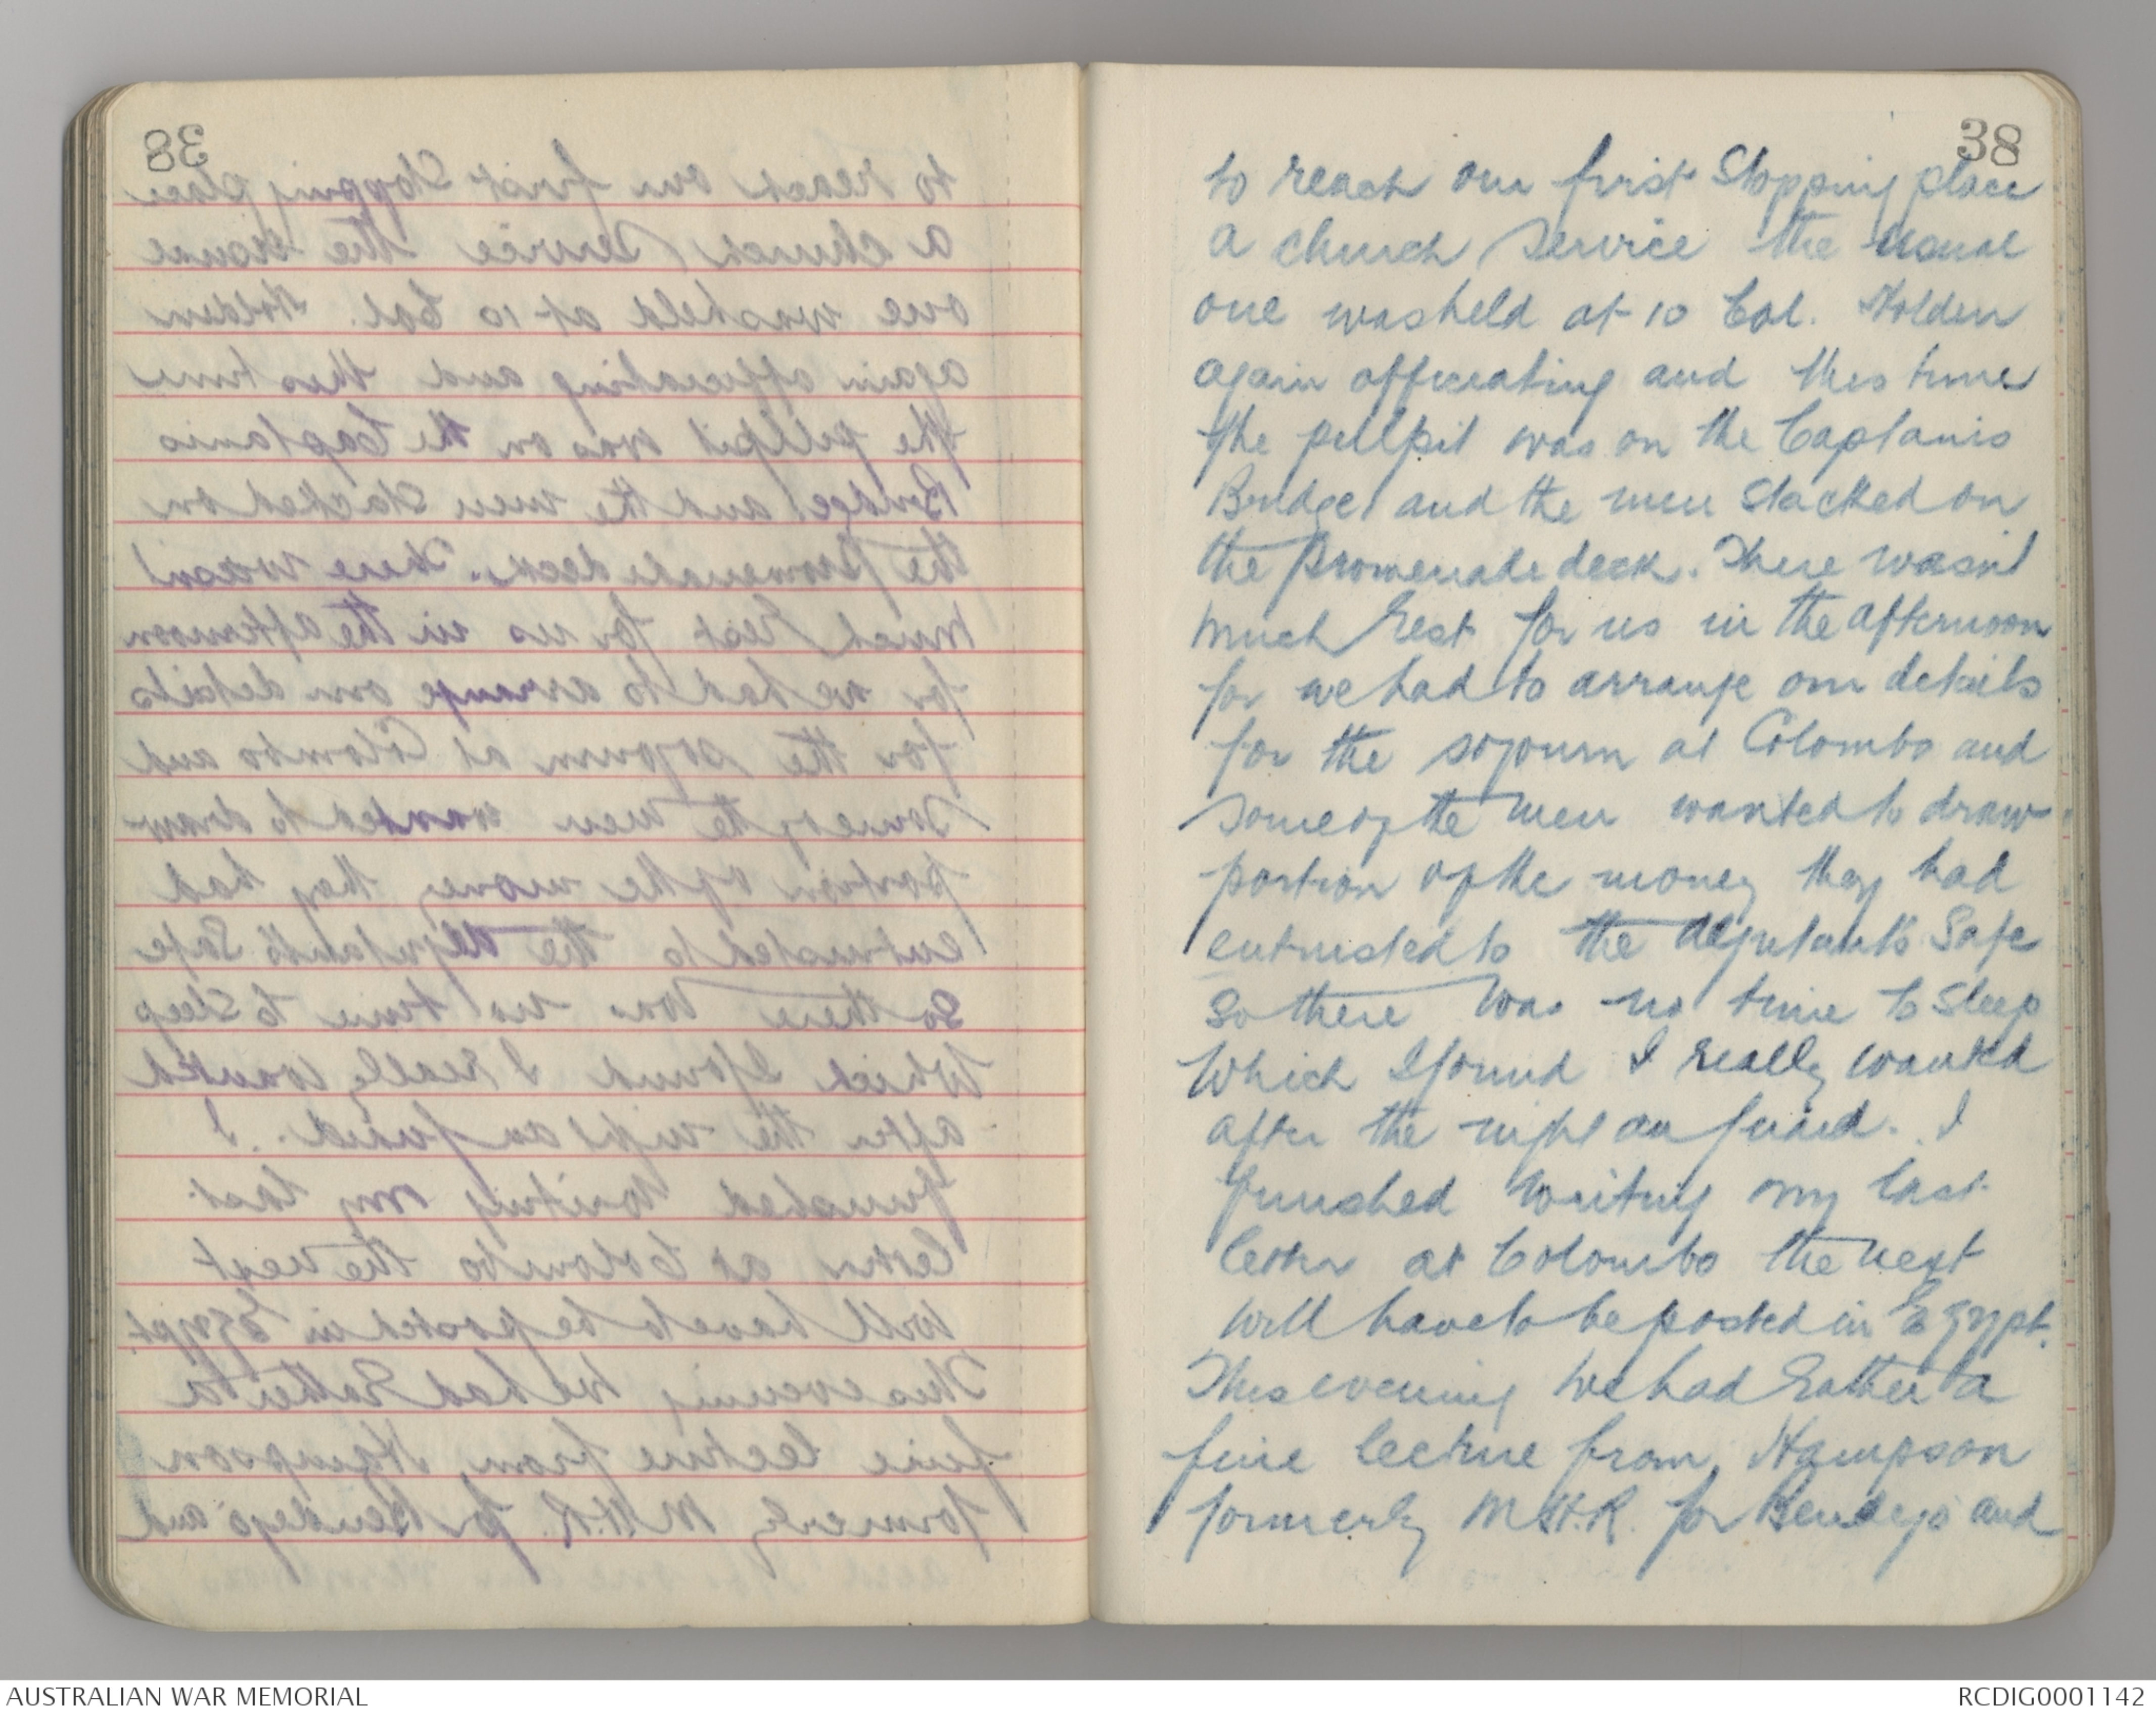 38
to reach our first Stopping place
a church Service the usual
one was held at 10 Col. Holden
again officiating and this time
the pulpit was on the Captains
Bridge and the men stacked on
the promenade deck. There wasn't
much rest for us in the afternoon
for we had to arrange our details
for the sojourn at Colombo and
some of the men wanted to draw
portion of the money they had
entrusted to the Adjutant's Safe
So there was no time to sleep
Which I found I really wanted
after the night on guard. I
finished writing my last
letter at Colombo the next
will have to be posted in Egypt.
This evening we had rather a
fine lecture from Hampson
formerly M.H.R. for Bendigo and
AUSTRALIAN WAR MEMORIAL
RCDIG0001142